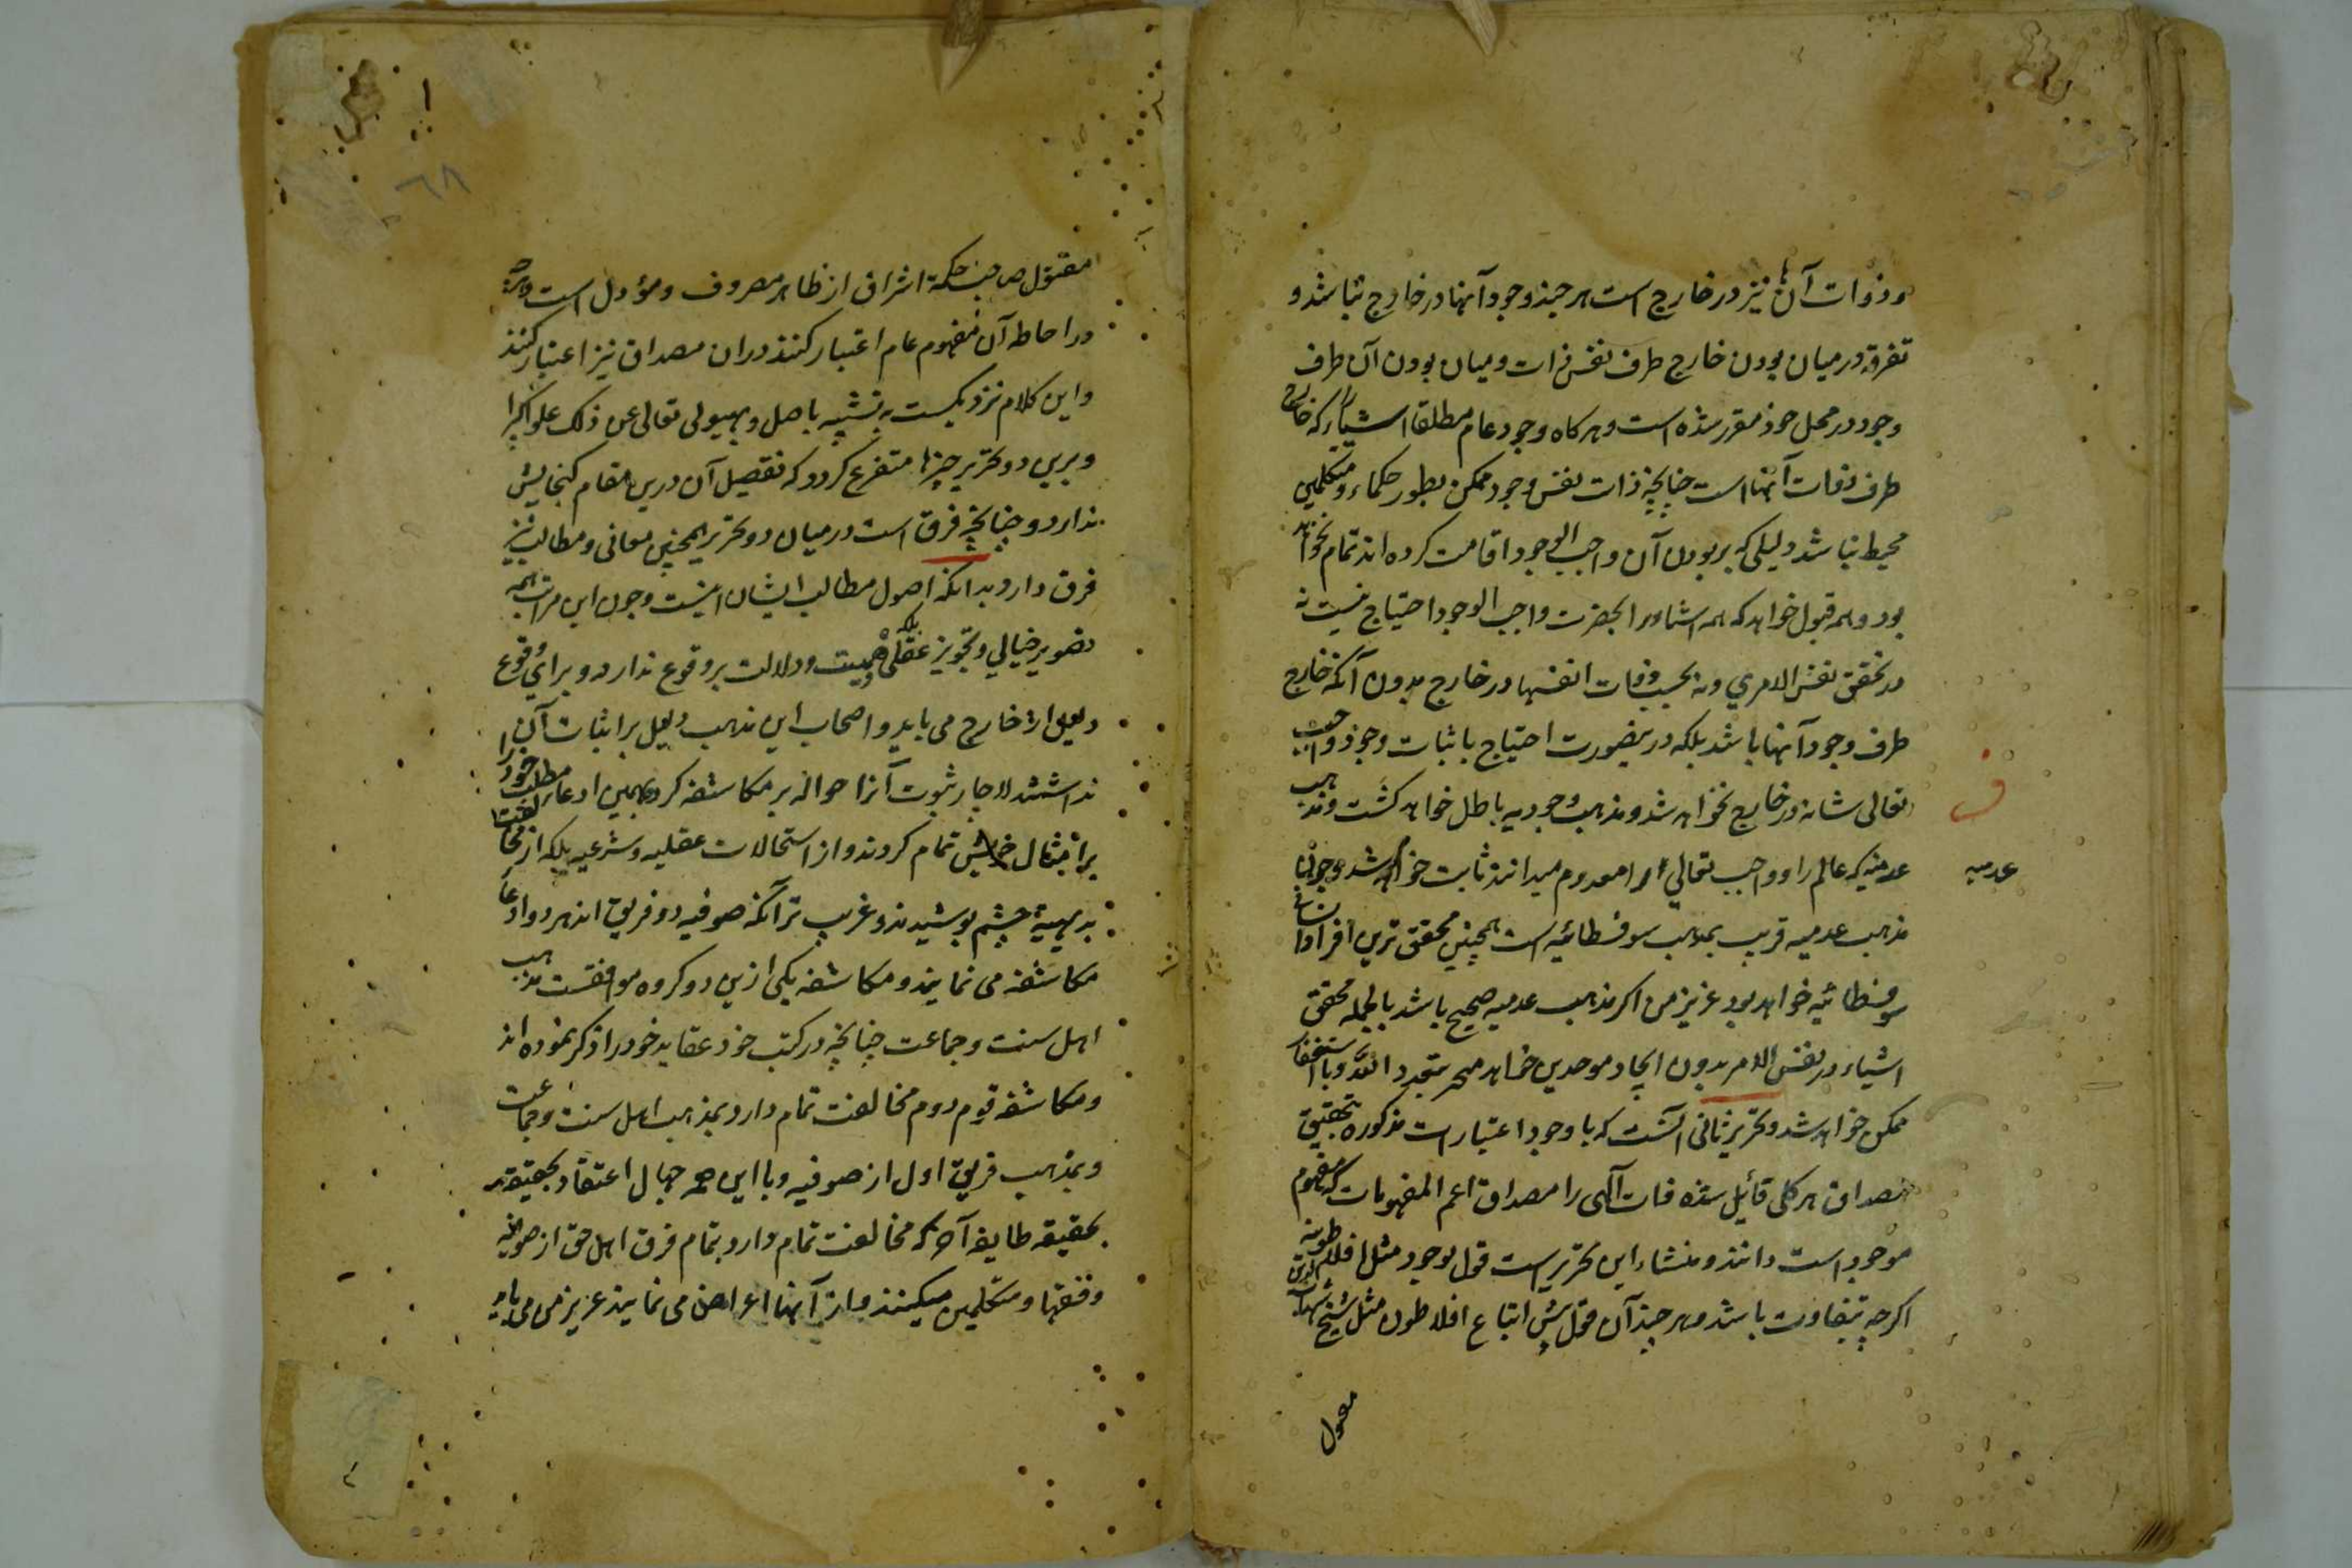 و ذوات آنها نیز در خارج است هر چند وجود آنها در خارج نباشد و
تفرقه در میان بودن خارج ظرف نفس ذات و میان بودن آن ظرف
وجود در محل خود مقرر شده است و هر کاه وجود عام مطلقا اشیاء که خارج
ظرف ذوات آنها است چنانچه ذات نفس وجود ممکن بطور حکماء و متکلمین
محیط نباشد دلیلی که بر بودن آن واجب الوجود اقامت کرده اند تمام نخواهد
بود و همه قبول خواهد که همه اشیاء را بحضرت واجب الوجود احتیاج نیست نه
در تحقق نفس الامری و نه بحسب ذوات انفسها در خارج بدون آنکه خارج
ظرف وجود آنها باشد بلکه درینصورت احتیاج باثبات وجود واجب
تعالی شانه در خارج نخواهد شد و مذهب وجودیه باطل خواهد کشت و مذهب
عدمیه که عالم را و واجب تعالی را معدوم میدانند ثابت خواهد شد و چون
عدمیه
مذهب عدمیه قریب بمذهب سوفسطائیه است همچنین محقق ترین افراد
سوفسطائیه خواهد بود عزیز من اکر مذهب عدمیه صحیح باشد بالجمله محقق
اشیاء در نفس الامر بدون ایجاد موحدین
ممکن خواهد شد و تحریر ثانی آنست که با وجود اعتبارات مذکوره بتحقیق
مصداق هر کلی قائل شده ذات آلهی را مصداق اعم المفهومات که مفهوم
موجود است دانند و منشاء این تحریر است قول بوجود مثل افلاطونیه
اکرچه بتفاوت باشد و هر چند آن قول پیش اتباع افلاطون مثل شیخ شهاب الدین
مقتول
مقتول صاحب حکمة اشراق از ظاهر مصروف و مؤول است
در احاطه آن مفهوم عام اعتبار کنند دران مصداق نیز اعتبار کنند
و این کلام نزدیکست به تشبیه باصل و بهیولی تعالی عن ذلک علوا کبیرا
و برین دو تحریر چیزها متفرع کردد که تفصیل آن درین مقام کنجایش
ندارد و چنانچه فرق است در میان دو تحریر همچنین معانی و مطالب نیز
فرق دارد بدانکه اصول مطالب ایشان اینست و چون این مراتب همه
تصویر خیالی و تجویز عقلی و همیست و دلالت بر وقوع ندارد و برای وقوع
دلیل از خارج می باید و اصحاب این مذهب دلیل بر اثبات آن
نداشتند لاچار ثبوت آنرا حواله بر مکاشفه کردند همین ادعا مطلب خود را
برامثال خویش تمام کردند و از استحالات عقلیه و شرعیه بلکه از مخالفت
بدیهیة چشم پوشیدند و غریب تر آنکه صوفیه دو فریق اند هر دو ادعاء
مکاشفه می نمایند و مکاشفه یکی ازین دو کروه موافقست بمذهب
اهل سنت و جماعت چنانچه در کتب خود عقاید خود را ذکر نموده اند
و مکاشفه قوم دوم مخالفت تمام دارد بمذهب اهل سنت و جماعت
و بمذهب فریق اول از صوفیه و با این همه جهال اعتقاد بحقیقه
بحقیقه طایفه آخر که مخالفت تمام دارد بتمام فرق اهل حق از صوفیه
و فقها و متکلمین میکنند و از آنها اعراض می نمایند عزیز من می باید